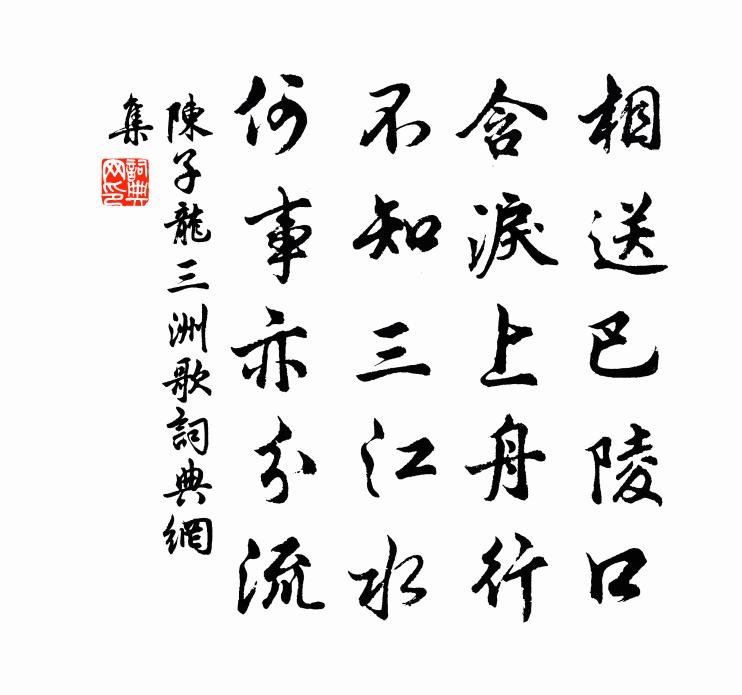 相送巴陵口
含淚上舟行
不知三江水
何事亦分流
陳子龍三洲歌詞典網
集
詞典網印